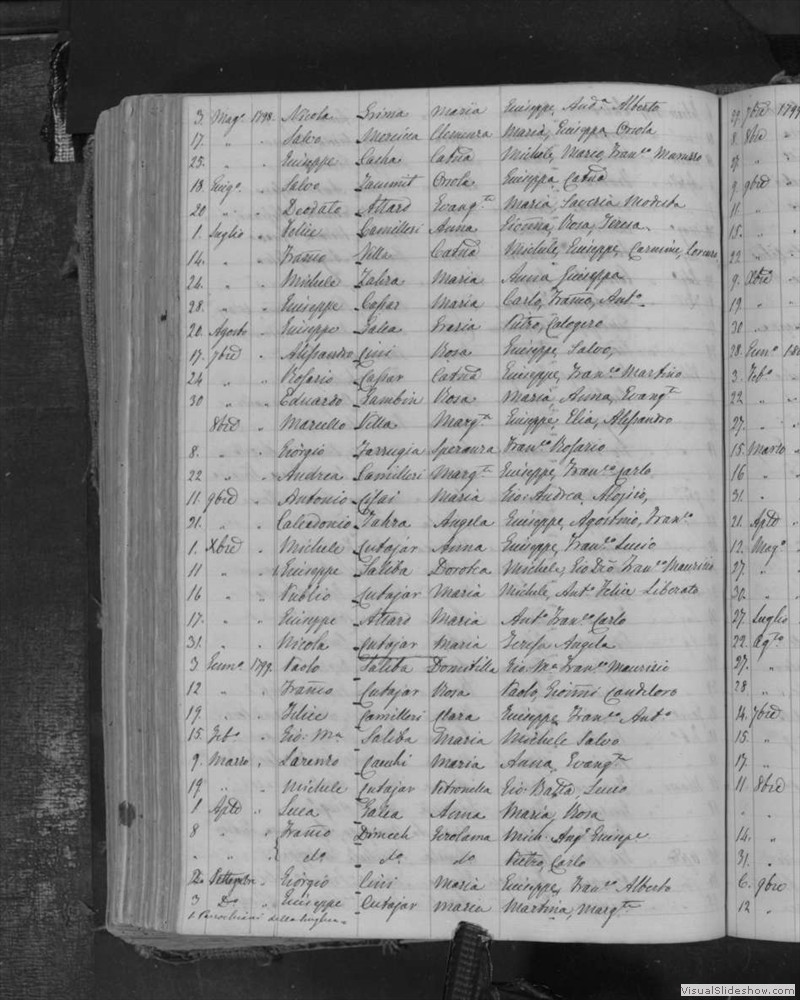 3. Mag.º 1798. Nicola Grima Maria Giuseppe, And.ª Alberto
17. " " Salvo Clemenza Maria, Giuseppa, Orsola
25. " " Giuseppe Cacha Catnã Michele, Marco, Fran.co
18. Giug.º " Salvo Zammit Orsola Giuseppa, Catnã
20 " " Deodato Attard Evang.ta Maria, Saveria Modesta
1. Luglio " Felice Camilleri Anna Giovña, Rosa, Teresa
14. " " Frañco Villa Catnã Michele, Giuseppe, Carmine,
24. " " Michele Zahra Maria Anna, Giuseppa
28. " " Giuseppe Caṡsar Maria Carlo, Frañco, Ant.º
20. Agosto " Giuseppe Galea Grazia Pietro, Calogero
17. 7bre " Alessandro Cini Rosa Giuseppe, Salvo,
24 " " Rosario Cassar Catnã Giuseppe, Fran.co Martino
30 " " Eduardo Rosa Maria, Anna, Evang.ta
8bre " Marcello Villa Marg.ta Giuseppe, Elia, Alessandro
8. " " Giorgio Farrugia Speranza Fran.co Rosario
22 " " Andrea Camilleri Marg.ta Giuseppe, Fran.co Carlo
11. 9bre " Antonio Maria Gio: Andrea, Alojsio,
21. " " Calcedonio Zahra Angela Giuseppe, Agostino, Fran.co
1. Xbre " Michele Cutajar Anna Giuseppe, Fran.co Lucio
11 " " Giuseppe Saliba Dorotea Michele, Gio Fran.co Maurizio
16 " " Publio Cutajar Maria Michele, Ant.º Felice Liberato
17. " " Giuseppe Attard Maria Ant.º Fran.co Carlo
31. " " Nicola Cutajar Maria Teresa Angela
3 Genn.º 1799. Paolo Saliba Domitilla Gio: M.a Fran.co Maurizio
12 " " Frañco Cutajar Rosa Paolo, Gioñni Candeloro
19. " " Felice Camilleri Clara Giuseppe, Fran.co Ant.º
15. Feb.º " Gio: M.a Saliba Maria Michele Salvo
9. Marzo " Lorenzo Cacchi Maria Anna, Evang.ta
19 " " Michele Cutajar Petronilla Gio: Batta, Lucio
1 Aple " Luca Galea Anna Maria, Rosa
8 " " Frañco Dimech Gerolama Mich: Ang.º Giusp.e
" " d.º d.º d.º Pietro, Carlo
2. Settembre " Giorgio Cini Maria Giuseppe, Fran.co Alberto
3 D.º " Giuseppe Cutajar Maria Martina, Marg.ta
1. Parochiani della
29. 7bre 1799
8. 8bre "
28. " "
9. 9bre
11. "
15. "
22. "
9. Xbre
19 "
30 "
28. Genn.º 180
3. Feb.º
22 "
27. "
15. Marzo
16 "
31. "
21. Aple
12. Mag.º
27. "
30. "
27. Luglio
22. Ag.to
27. "
28. "
14. 7bre
15. "
17. "
11 8bre
" "
14. "
31. "
6. 9bre
12 "
VisualSlideshow.com